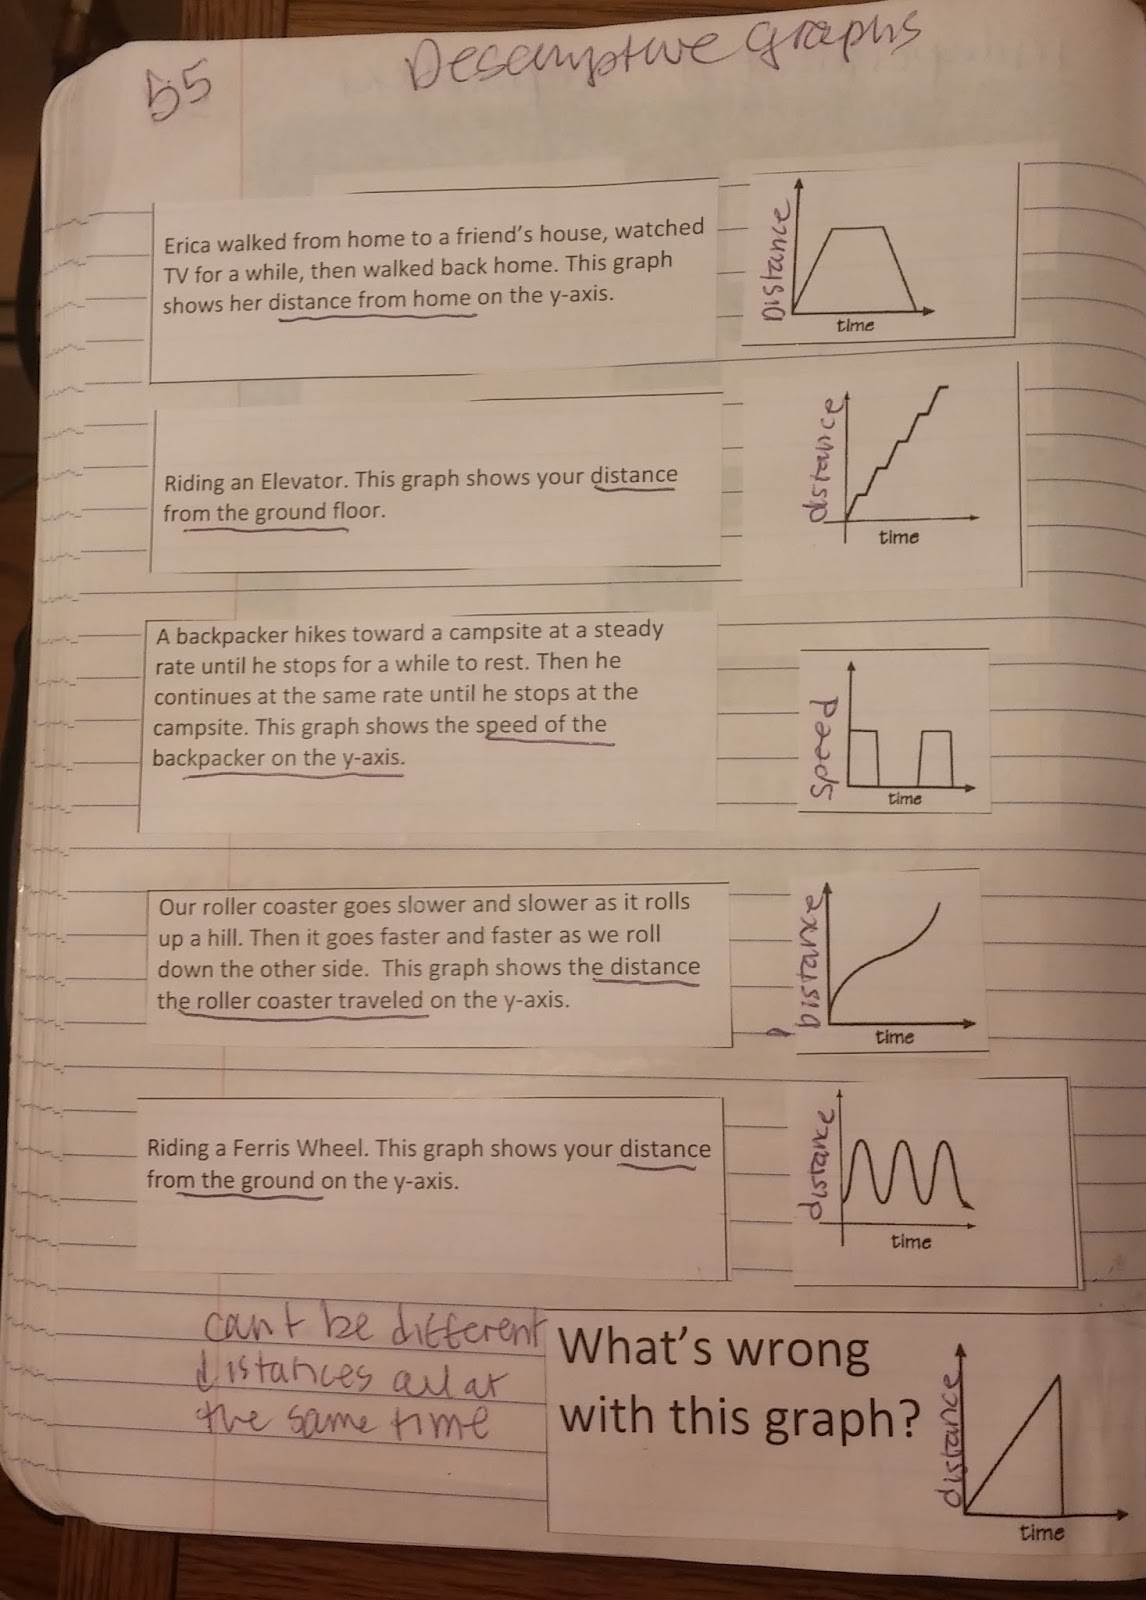 55
Descriptive graphs
Erica walked from home to a friend's house, watched
TV for a while, then walked back home. This graph
shows her distance from home on the y-axis.
Distance
time
Riding an Elevator. This graph shows your distance
from the ground floor.
distance
time
A backpacker hikes toward a campsite at a steady
rate until he stops for a while to rest. Then he
continues at the same rate until he stops at the
campsite. This graph shows the speed of the
backpacker on the y-axis.
speed
time
Our roller coaster goes slower and slower as it rolls
up a hill. Then it goes faster and faster as we roll
down the other side. This graph shows the distance
the roller coaster traveled on the y-axis.
Distance
time
Riding a Ferris Wheel. This graph shows your distance
from the ground on the y-axis.
distance
time
can't be different
distances all at
the same time
What's wrong
with this graph?
distance
time